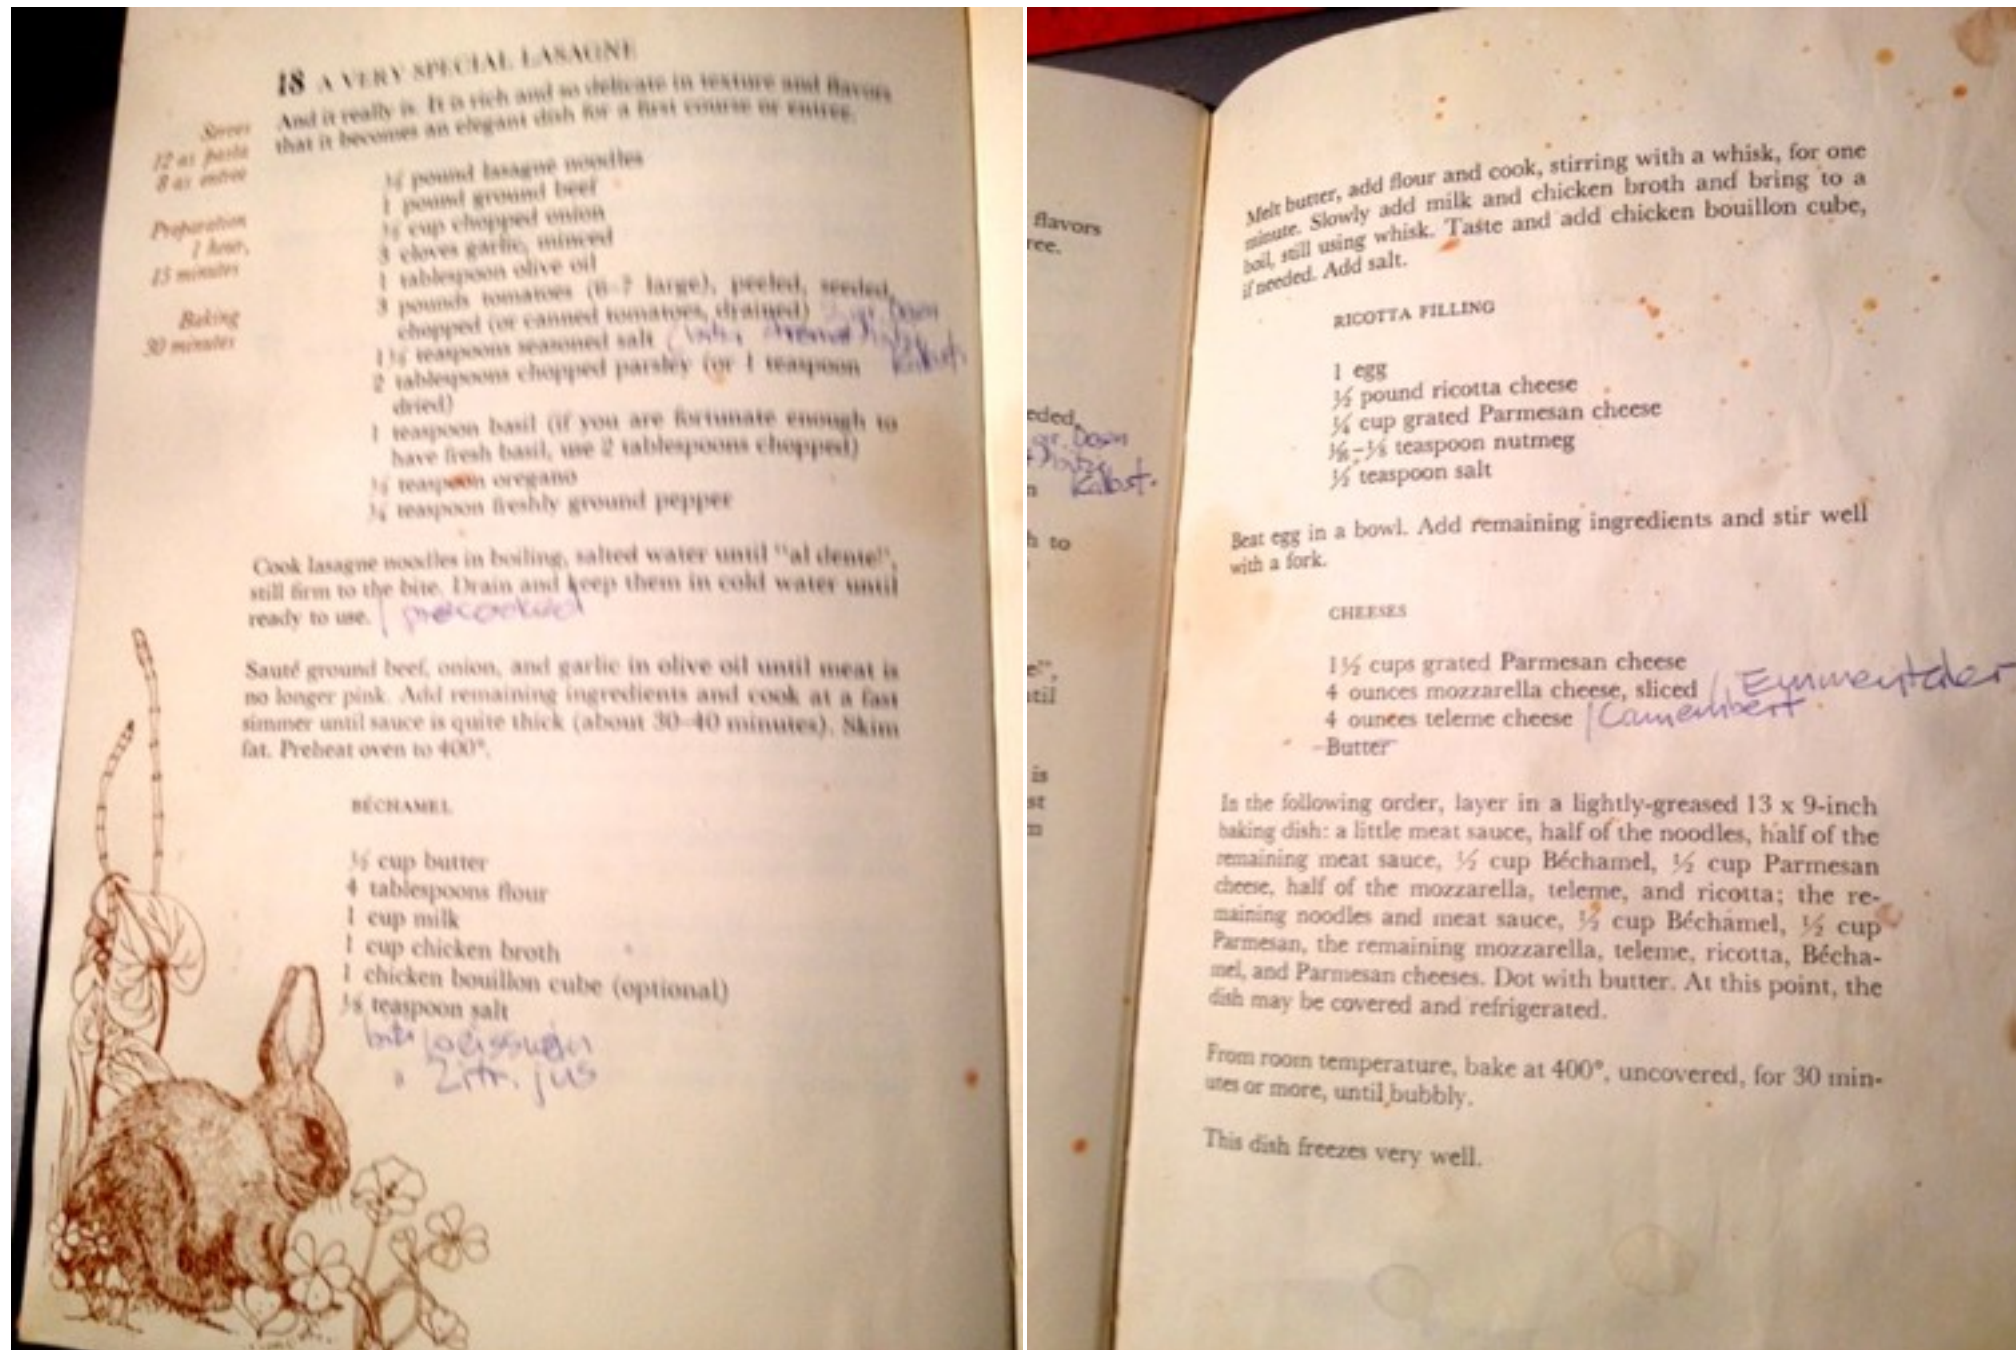 18 A VERY SPECIAL LASAGNE
And it really is. It is rich and so delicate in texture and flavors
that it becomes an elegant dish for a first course or entree.
Serves
12 as pasta
8 as entree
Preparation
1 hour,
15 minutes
Baking
30 minutes
pound lasagne noodles
1 pound ground beef
½ cup chopped onion
3 cloves garlic, minced
1 tablespoon olive oil
3 pounds tomatoes (6-7 large), peeled, seeded,
chopped (or canned tomatoes, drained) gr. Dosen
teaspoons seasoned salt
2 tablespoons chopped parsley (or 1 teaspoon
dried)
1 teaspoon basil (if you are fortunate enough to
have fresh basil, use 2 tablespoons chopped)
teaspoon oregano
teaspoon freshly ground pepper
Cook lasagne noodles in boiling, salted water until "al dente",
still firm to the bite. Drain and keep them in cold water until
ready to use. / precooked
Sauté ground beef, onion, and garlic in olive oil until meat is
no longer pink. Add remaining ingredients and cook at a fast
simmer until sauce is quite thick (about 30-40 minutes). Skim
fat. Preheat oven to 400°.
BÉCHAMEL
cup butter
4 tablespoons flour
1 cup milk
1 cup chicken broth
1 chicken bouillon cube (optional)
teaspoon salt
Weisswein
Zitr. jus
flavors
ree.
eded,
gr. Dosen
h to
e",
til
is
st
m
Melt butter, add flour and cook, stirring with a whisk, for one
minute. Slowly add milk and chicken broth and bring to a
boil, still using whisk. Taste and add chicken bouillon cube,
if needed. Add salt.
RICOTTA FILLING
1 egg
½ pound ricotta cheese
¼ cup grated Parmesan cheese
teaspoon nutmeg
½ teaspoon salt
Beat egg in a bowl. Add remaining ingredients and stir well
with a fork.
CHEESES
1½ cups grated Parmesan cheese
4 ounces mozzarella cheese, sliced /, Emmentaler
4 ounces teleme cheese / Camembert
Butter
In the following order, layer in a lightly-greased 13 x 9-inch
baking dish: a little meat sauce, half of the noodles, half of the
remaining meat sauce, ½ cup Béchamel, ½ cup Parmesan
cheese, half of the mozzarella, teleme, and ricotta; the re-
maining noodles and meat sauce, ½ cup Béchamel, ½ cup
Parmesan, the remaining mozzarella, teleme, ricotta, Bécha-
mel, and Parmesan cheeses. Dot with butter. At this point, the
dish may be covered and refrigerated.
From room temperature, bake at 400°, uncovered, for 30 min-
utes or more, until bubbly.
This dish freezes very well.